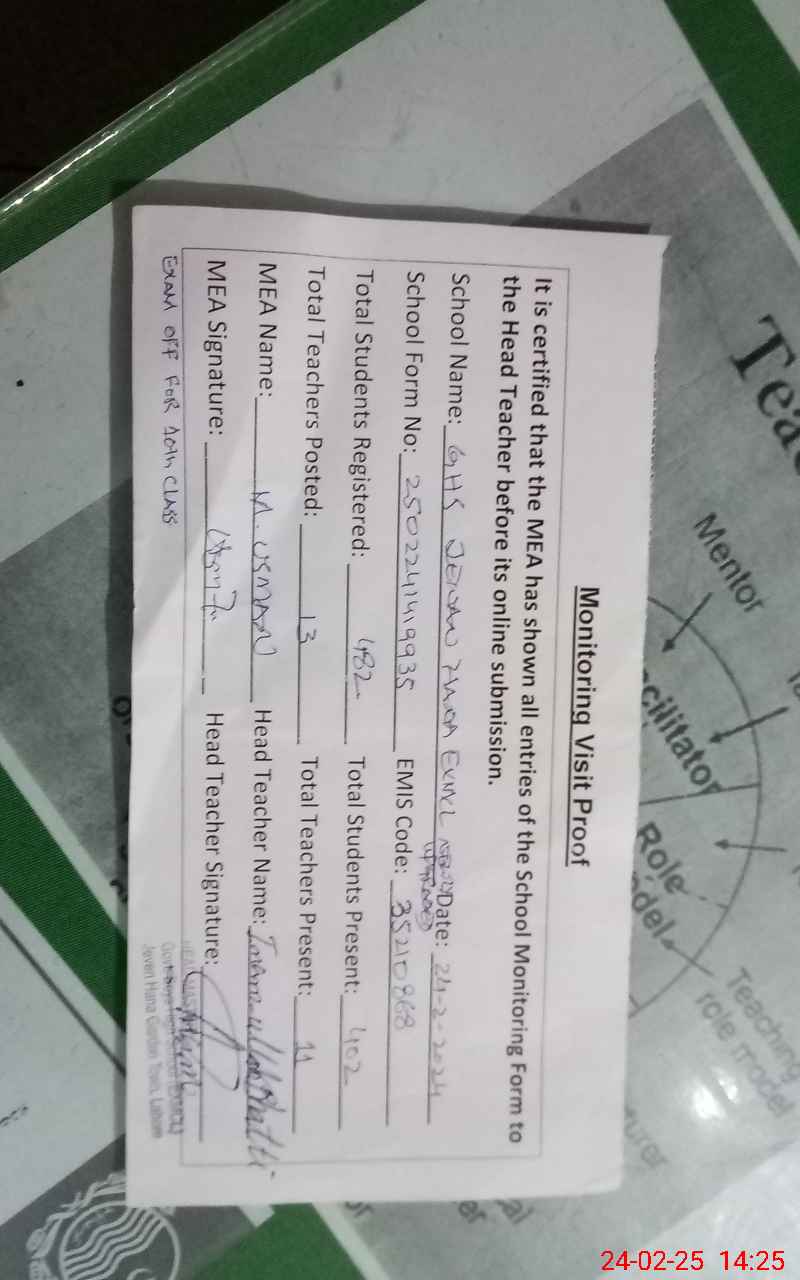 Monitoring Visit Proof
It is certified that the MEA has shown all entries of the School Monitoring Form to
the Head Teacher before its online submission.
School Name: GHS JEEVAN HANA Date: 24-2-2024
School Form No: 2502241419935 EMIS Code: 35210868
Total Students Registered: 482 Total Students Present: 402
Total Teachers Posted: 13 Total Teachers Present: 11
MEA Name: M. USMAN Head Teacher Name:
MEA Signature: Head Teacher Signature:
Jeven Hana Garden Town, Lahore
EXAM OFF FOR 10th CLASS
Tea
Mentor
cilitator
Role
odel
Teaching
role model
urer
24-02-25 14:25